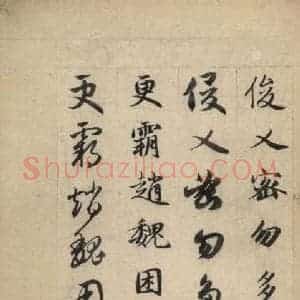 俊乂密勿多
俊乂密勿多
更霸趙魏困
更霸趙魏困
Shufaziliao.com